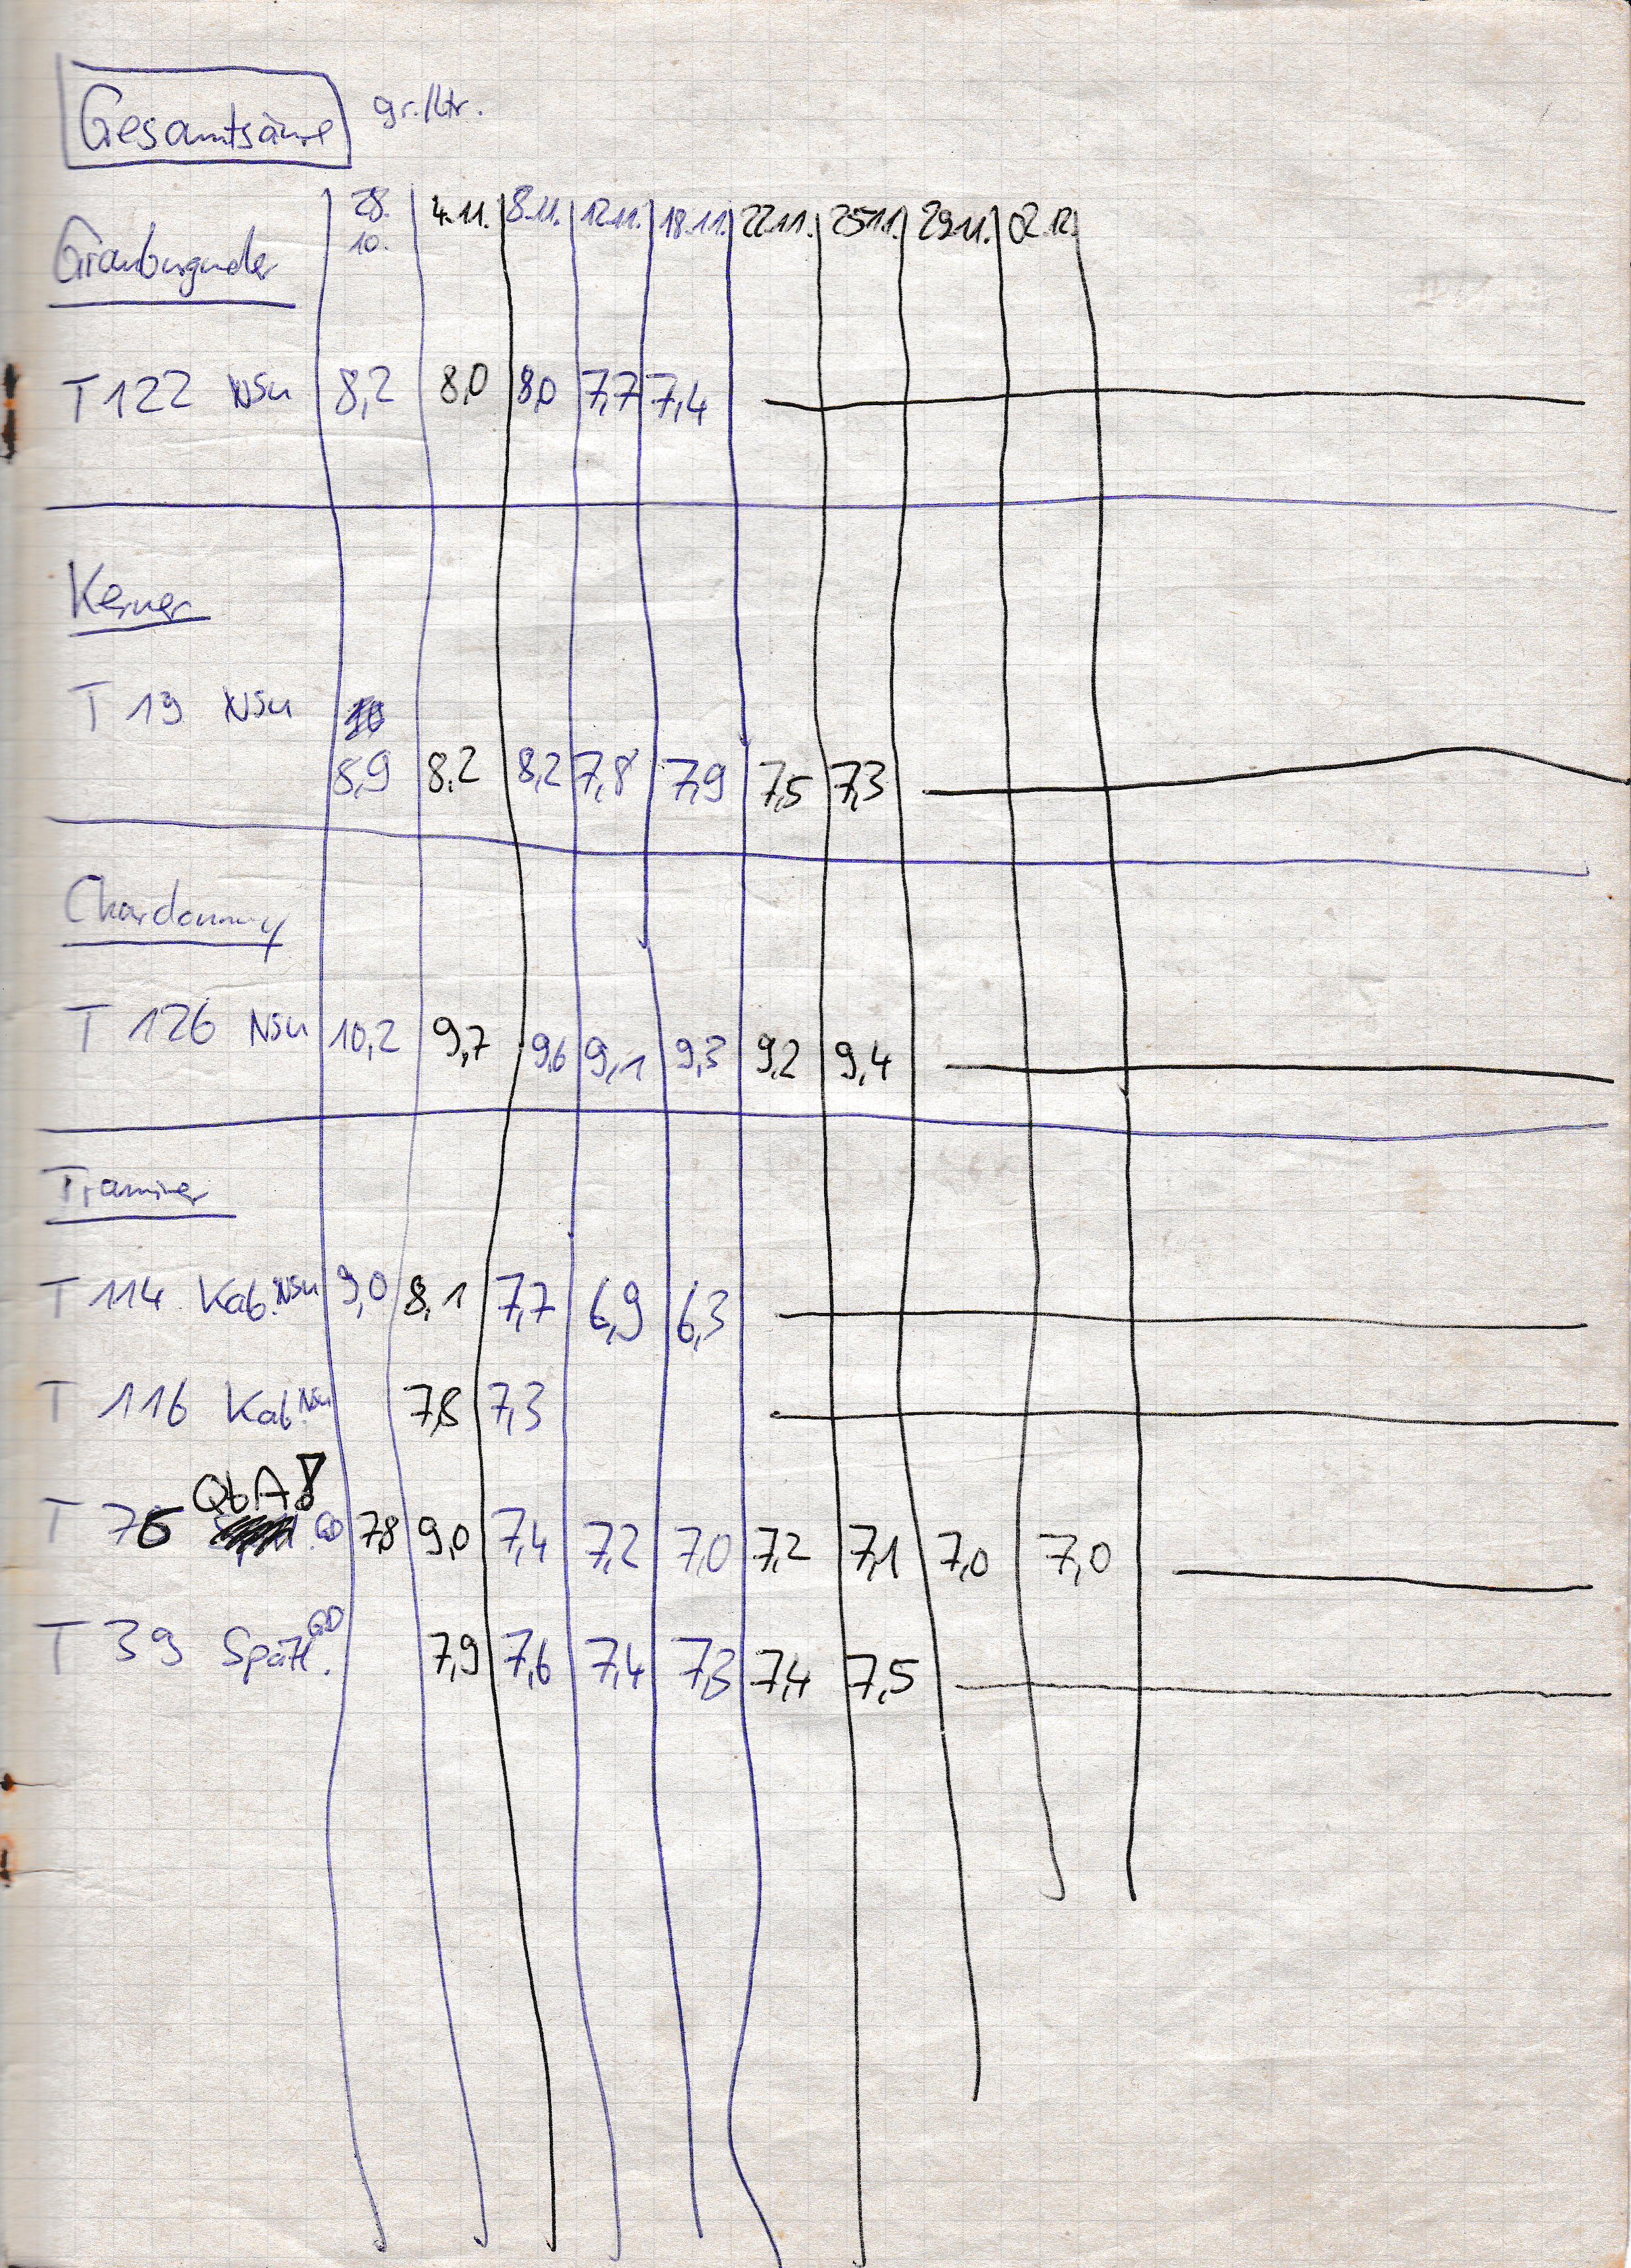 Gesamtsäure gr./Ltr.
28. 10. 4.11. 8.11. 12.11. 18.11. 22.11. 25.11. 29.11. 02.12.
Grauburgunder
T 122 NSU 8,2 8,0 8,0 7,7 7,4
Kerner
T 19 NSU
8,9 8,2 8,2 7,8 7,9 7,5 7,3
Chardonnay
T 126 NSU 10,2 9,7 9,6 9,1 9,3 9,2 9,4
Traminer
T 114 Kab. NSU 9,0 8,1 7,7 6,9 6,3
T 116 Kab. NSU 7,8 7,3
QbA!
T 76 GD 7,8 9,0 7,4 7,2 7,0 7,2 7,1 7,0 7,0
T 39 Spätl. GD 7,9 7,6 7,4 7,3 7,4 7,5